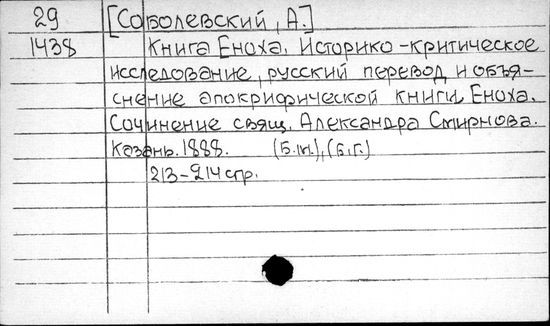 29 [Соболевский, А.]
1438 Книга Еноха. Историко-критическое
исследование, русский перевод и объя-
снение апокрифической книги Еноха.
Сочинение свящ. Александра Смирнова.
Казань. 1888. (Б.м.), (Б.г.)
213-214 стр.